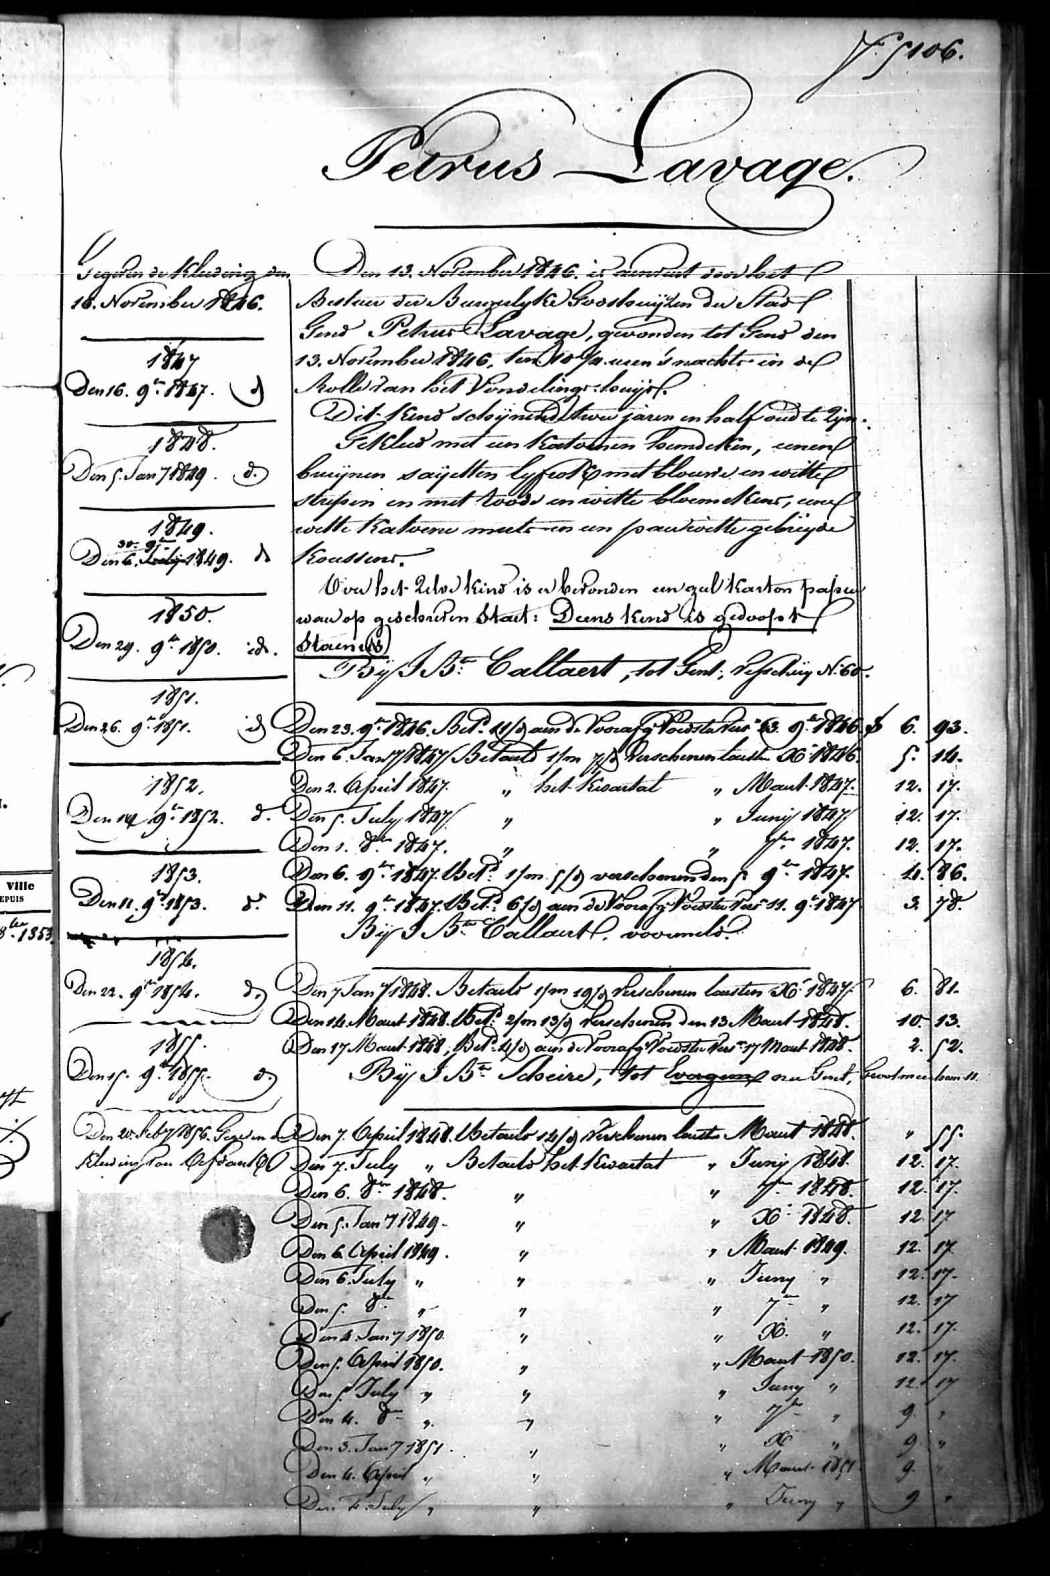 106.
Petrus Lavage.
Gegeven de Kleeding den
18. November 1846.
1847
Den 16. 9.bre 1847. d.
1848.
Den 5. Jan.y 1849. d.
1849.
30. 9.bre
Den 6. July 1849. d.
1850.
Den 29. 9.bre 1850. id.
1851.
Den 26. 9.bre 1851. id
1852.
Den 14 9.bre 1852. d.
1853.
Den 11. 9.bre 1853. d.
1854.
Den 22. 9.bre 1854. d.
1855.
Den 15. 9.bre 1855. d.
Den 20. Feb.y 1856. Gegeven de
Kleeding van
Den 13. November 1846. is aanveert door het
Bestuer der Burgerlyke Godshuijzen der Stad
Gend Petrus Lavage, gevonden tot Gend den
13. November 1846, ten 10 1/4 uren 's nachts in de
Rolle van het Vondelings-huijs.
Dit kind schijnend twee jaren en half oud te zijn.
Gekleed met een katoenen hemdeken, eenen
bruijnen saijetten lyfrok met blauwe en witte
strepen en met roode en witte bloemekens, eene
witte katoene muts en een paar witte gebreyde
koussens.
Over het zelve kind is er bevonden een geel karton papier
waer op geschreven staet: Deens kend is gedoopt
Staen(s)
Bij J. B.te Callaert, tot Gent, N.o 60.
Den 23. 9.bre 1846. Bet.d 11/d aen de Voorafg. Voedster vers. 23. 9.bre 1846. f 6. 93.
Den 6. Jan.y 1847 Betaeld 1/m 7/d Verschenen lausten X.bre 1846. 5. 14.
Den 2. April 1847. " het Kwartal " Maert 1847. 12. 17.
Den 5. July 1847. " " Junij 1847 12. 17.
Den 1. 8.bre 1847. " " 7.bre 1847. 12. 17.
Den 6. 9.bre 1847. Bet.d 1/m 5/d verschenen den 5 9.bre 1847. 4. 86.
Den 11. 9.bre 1847. Bet.d 6/d aen de Voorafg. Voedster Vers. 11. 9.bre 1847 3. 78.
Bij J. B.te Callaert, voormeld.
Den 7 Jan.y 1848. Betaeld 1/m 19/d Verschenen lausten X.bre 1847. 6. 81.
Den 14. Maert 1848. Bet.d 2/m 13/d Verschenen den 13 Maert 1848. 10. 13.
Den 17 Maert 1848, Bet.d 4/d aen de Voorafg. Voedster Vers. 17 Maert 1848. 2. 52.
Bij J. B.te Scheire, tot Gent,
Den 7. April 1848. Betaeld 14/d Verschenen lausten Maert 1848. " 55.
Den 7. July " Betaeld het Kwartal " Junij 1848. 12. 17.
Den 6. 8.bre 1848. " " 7.bre 1848. 12. 17.
Den 5. Jan.y 1849. " " X.bre 1848. 12. 17
Den 6. April 1849. " " Maert 1849. 12. 17.
Den 6. July " " " Juny " 12. 17.
Den 5. 8.bre " " " 7.bre " 12. 17
Den 4. Jan.y 1850. " " X. " 12. 17.
Den 5. April 1850. " " Maert 1850. 12. 17.
Den 5. July " " " Juny " 12. 17
Den 4. 8.bre " " " 7.bre " 9. "
Den 3. Jan.y 1851. " " X " 9. "
Den 4. April " " " Maert 1851. 9. "
Den 4. July " " " Juny " 9 "
Ville
EPUIS